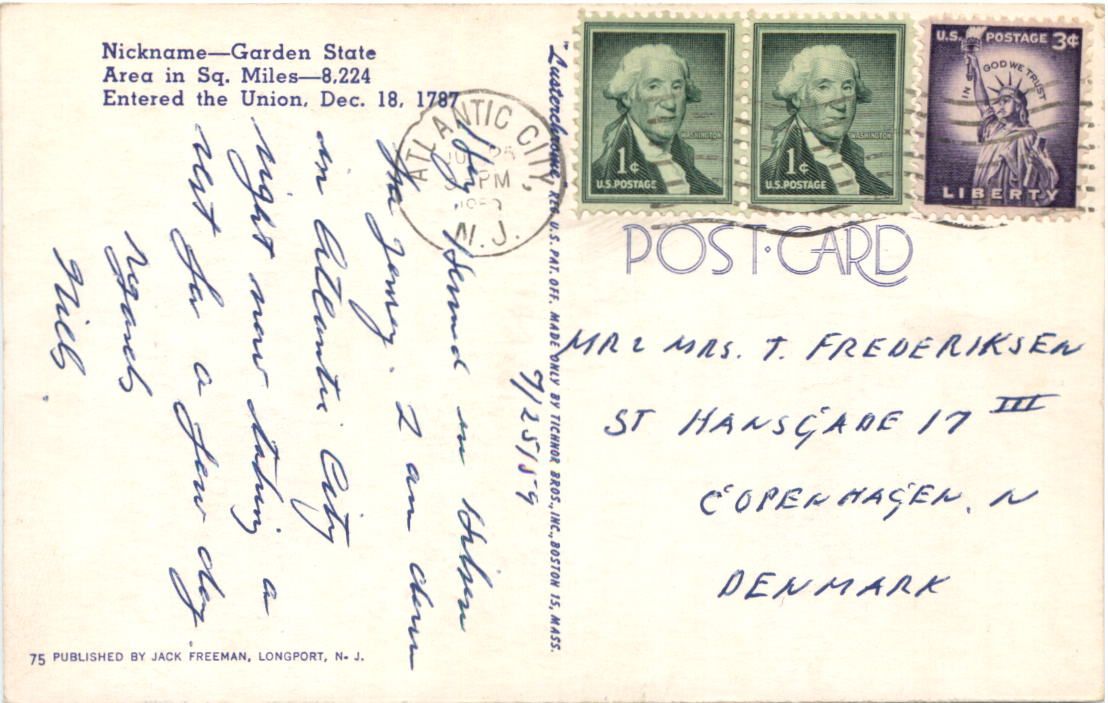 Nickname—Garden State
Area in Sq. Miles—8,224
Entered the Union, Dec. 18, 1787
ATLANTIC CITY,
25
PM
N. J.
WASHINGTON
1¢
U.S. POSTAGE
WASHINGTON
1¢
U.S. POSTAGE
U.S. POSTAGE 3¢
IN GOD WE TRUST
LIBERTY
POST CARD
"Lusterchrome," REG. U.S. PAT. OFF. MADE ONLY BY TICHNOR BROS., INC., BOSTON 15, MASS.
7/25/59
Hej Svend en Hilsen
fra Jersey. I am down
in Atlantic City
right now taking a
rest for a few day.
regards
Niels.
MR & MRS. T. FREDERIKSEN
ST HANSGADE 17 III
COPENHAGEN. N
DENMARK
75 PUBLISHED BY JACK FREEMAN, LONGPORT, N. J.